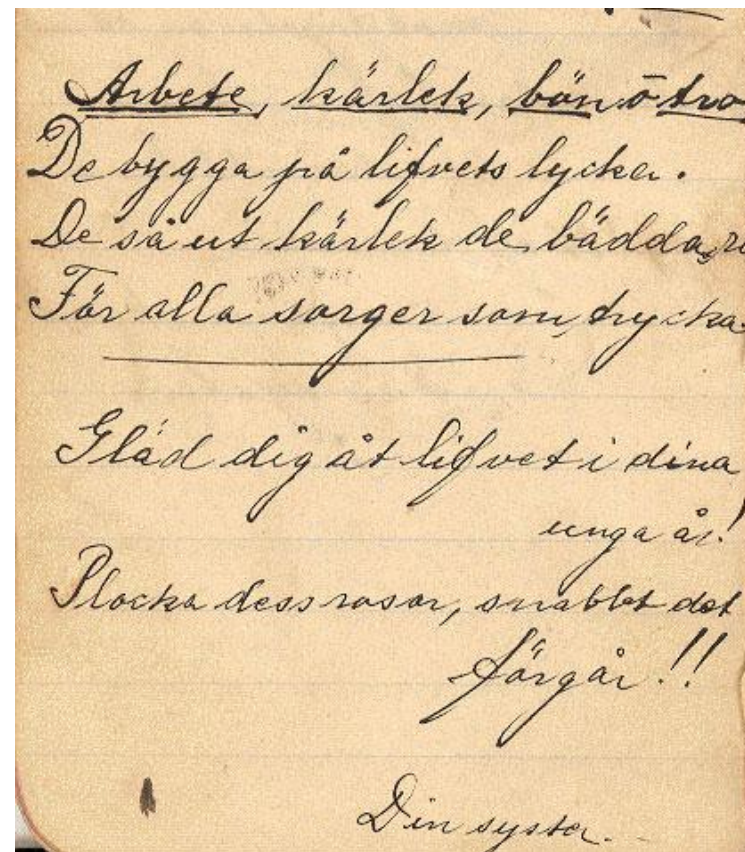 Arbete, kärlek, bön o tro
De bygga på lifvets lycka.
De så ut kärlek de bädda ro
För alla sorger som trycka.
Gläd dig åt lifvet i dina
unga år!
Plocka dess rosor, snabbt det
förgår!!
Din syster.